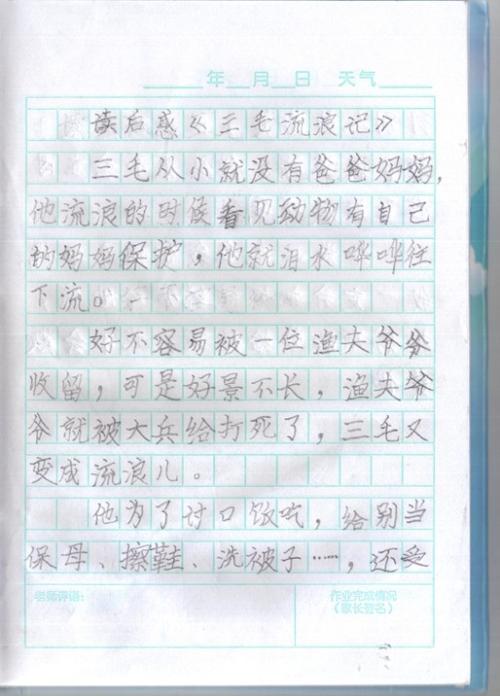 年 月 日 天气
读后感《三毛流浪记》
三毛从小就没有爸爸妈妈,
他流浪的时候看见动物有自己
的妈妈保护，他就泪水哗哗往
下流。
好不容易被一位渔夫爷爷
收留，可是好景不长，渔夫爷
爷就被大兵给打死了，三毛又
变成流浪儿。
他为了讨口饭吃，给别当
保母、擦鞋、洗被子……，还受
老师评语：
作业完成情况
（家长签名）